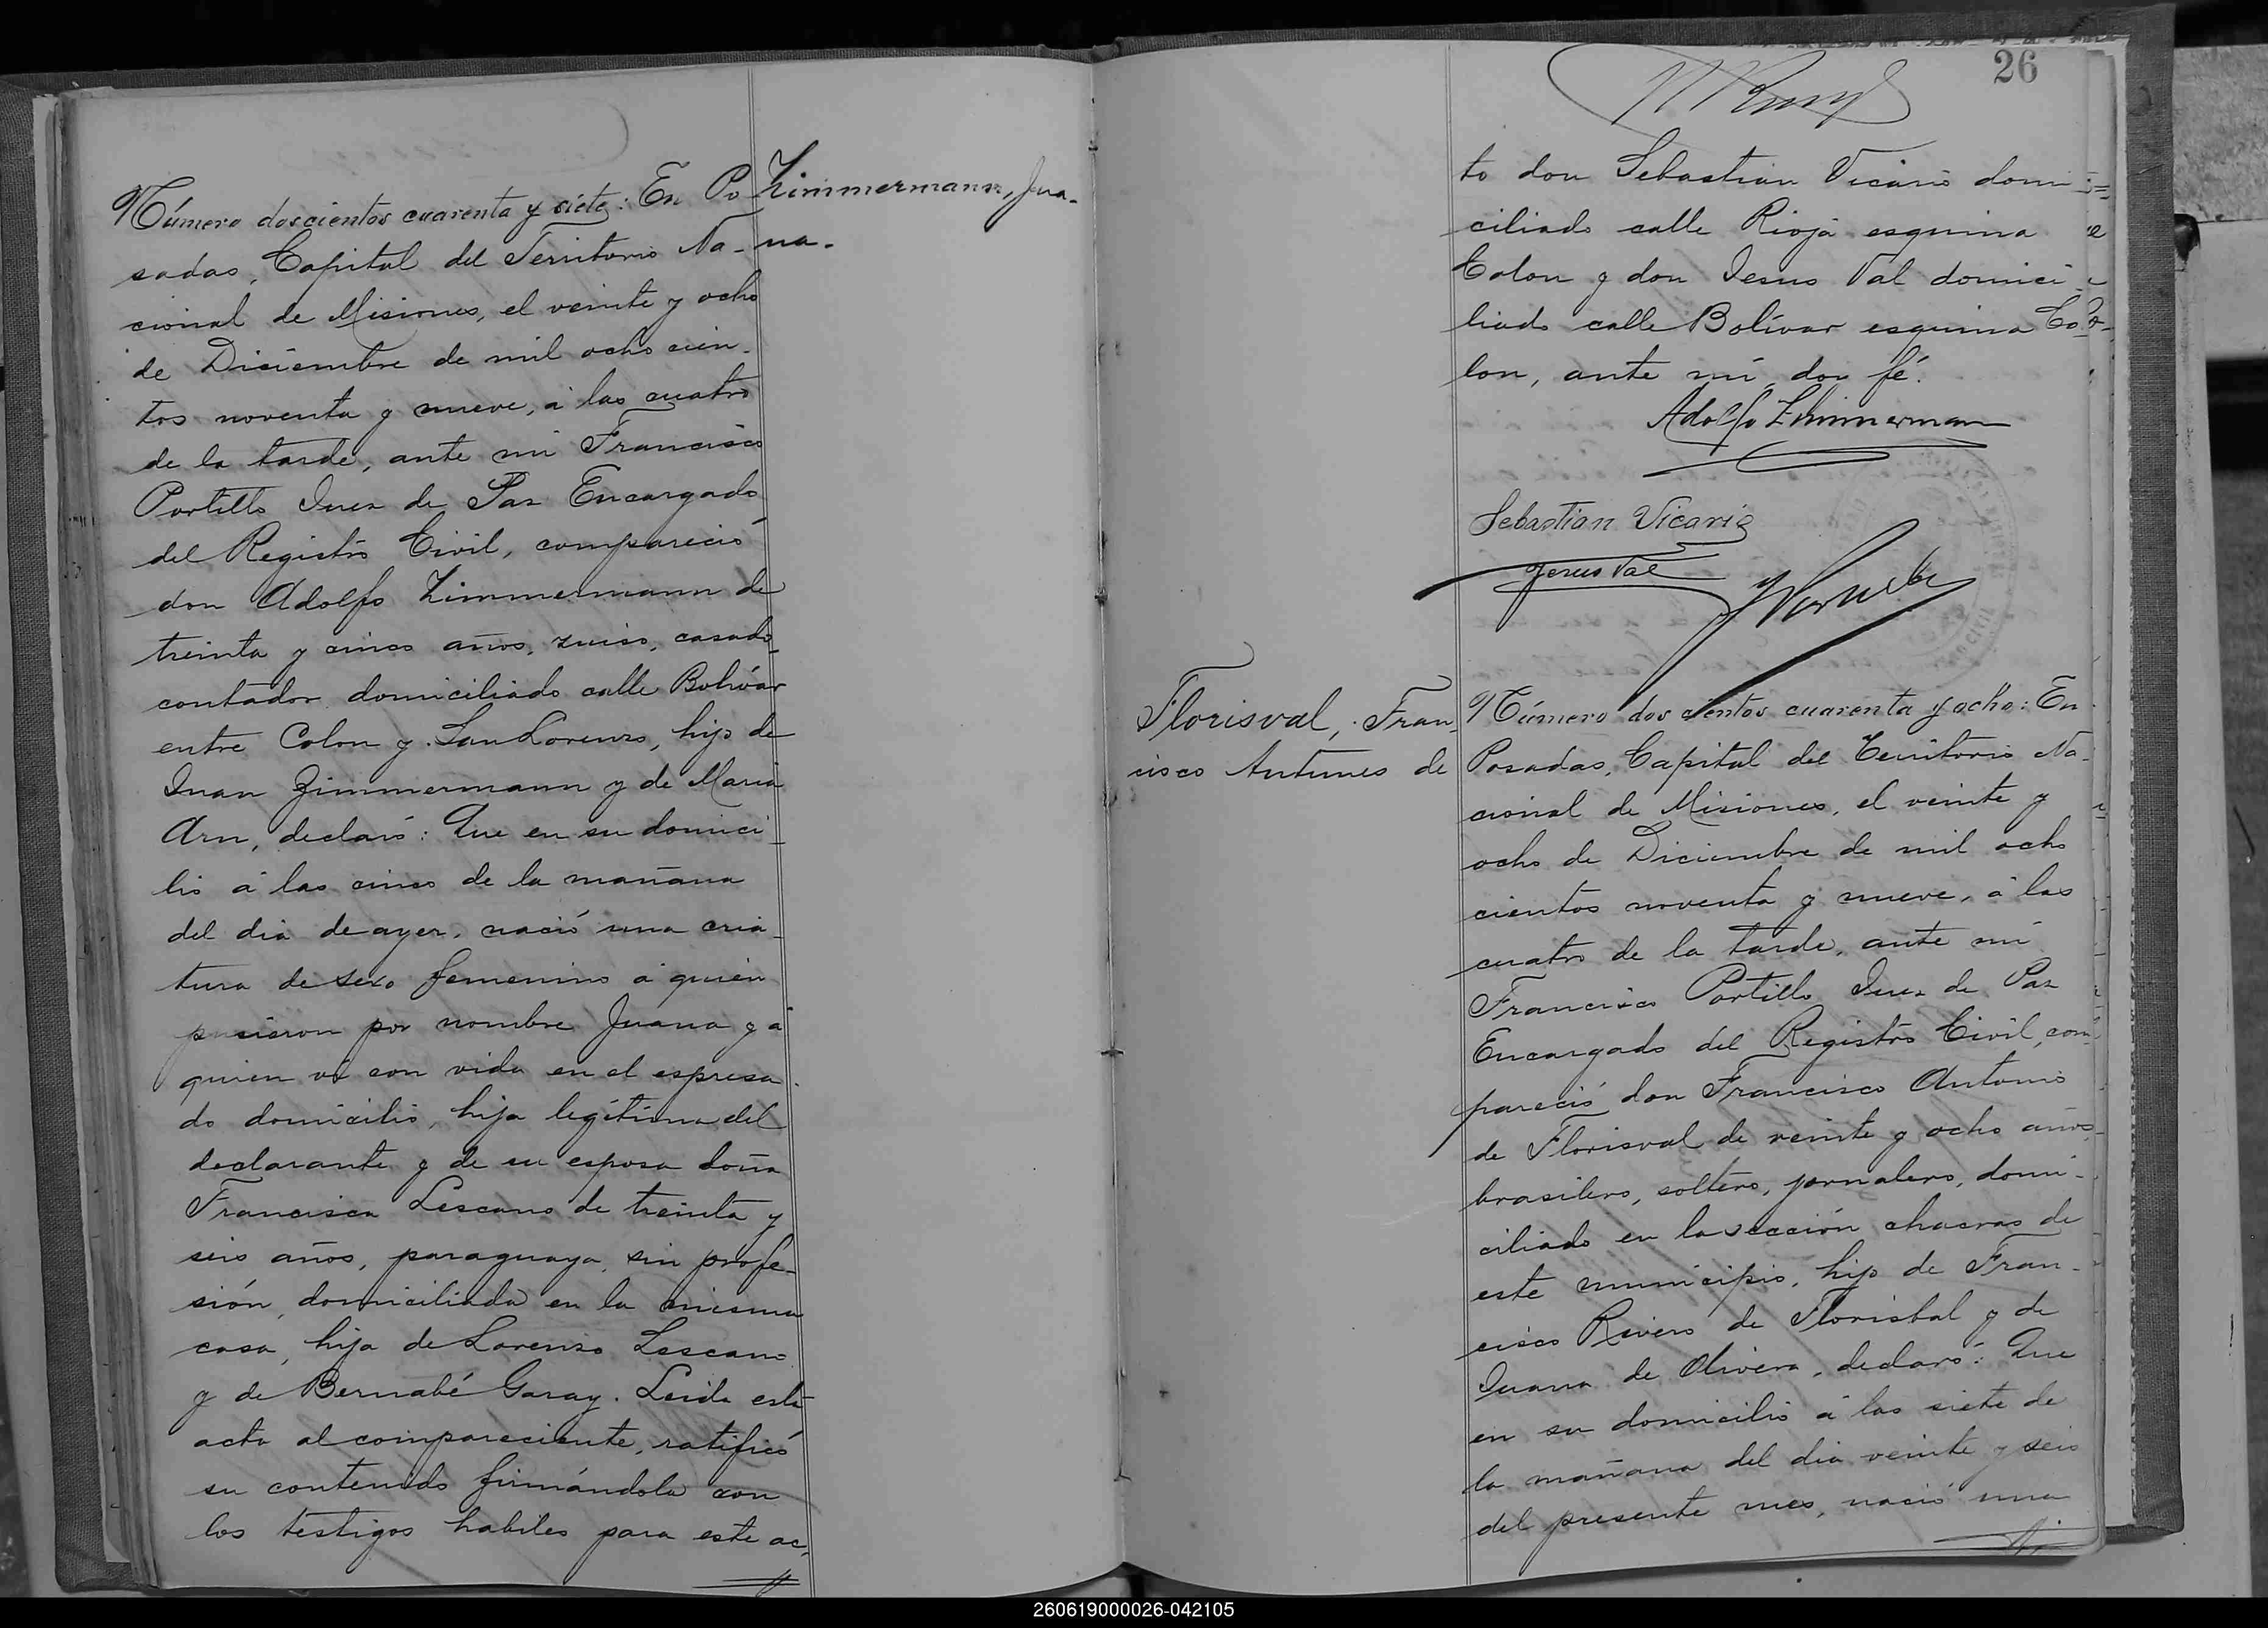 Zimmermann, Jua-
na.
Número doscientos cuarenta y siete: En Po
sadas, Capital del Territorio Na-
cional de Misiones, el veinte y ocho
de Diciembre de mil ocho cien-
tos noventa y nueve, á las cuatro
de la tarde, ante mi Francisco
Portillo Juez de Paz Encargado
del Registro Civil, compareció
don Adolfo Zimmermann de
treinta y cinco años, zuiso, casado,
contador domiciliado calle Bolívar
entre Colon y San Lorenzo, hijo de
Juan Zimmermann y de Maria
Arn, declaró: Que en su domici-
lio á las cinco de la mañana
del dia de ayer, nació una cria-
tura de sexo femenino á quien
pusieron por nombre Juana y á
quien ví con vida en el espresa-
do domicilio, hija legítima del
declarante y de su esposa doña
Francisca Lescano de treinta y
seis años, paraguaya, sin profe-
sión, domiciliada en la misma
casa, hija de Lorenzo Lescano
y de Bernabé Garay. Leida esta
acta al compareciente, ratificó
su contenido firmándola con
los testigos habiles para este ac-
26
to don Sebastian Vicario domi-
ciliado calle Rioja esquina
Colon y don Jesus Val domici-
liado calle Bolívar esquina Co-
lon, ante mí, doy fé.
Adolfo Zimmerman
Sebastian Vicario
Jesus Val
Florisval, Fran-
cisco Antunes de
Número dos cientos cuarenta y ocho: En
Posadas, Capital del Territorio Na-
cional de Misiones, el veinte y
ocho de Diciembre de mil ocho
cientos noventa y nueve, á las
cuatro de la tarde, ante mi
Francisco Portillo Juez de Paz
Encargado del Registro Civil, com-
pareció don Francisco Antonio
de Florisval de veinte y ocho años,
brasilero, soltero, jornalero, domi-
ciliado en la sección chacras de
este municipio, hijo de Fran-
cisco Rivero de Florisbal y de
Juana de Olivera, declaró: Que
en su domicilio á las siete de
la mañana del dia veinte y seis
del presente mes, nació una
260619000026-042105